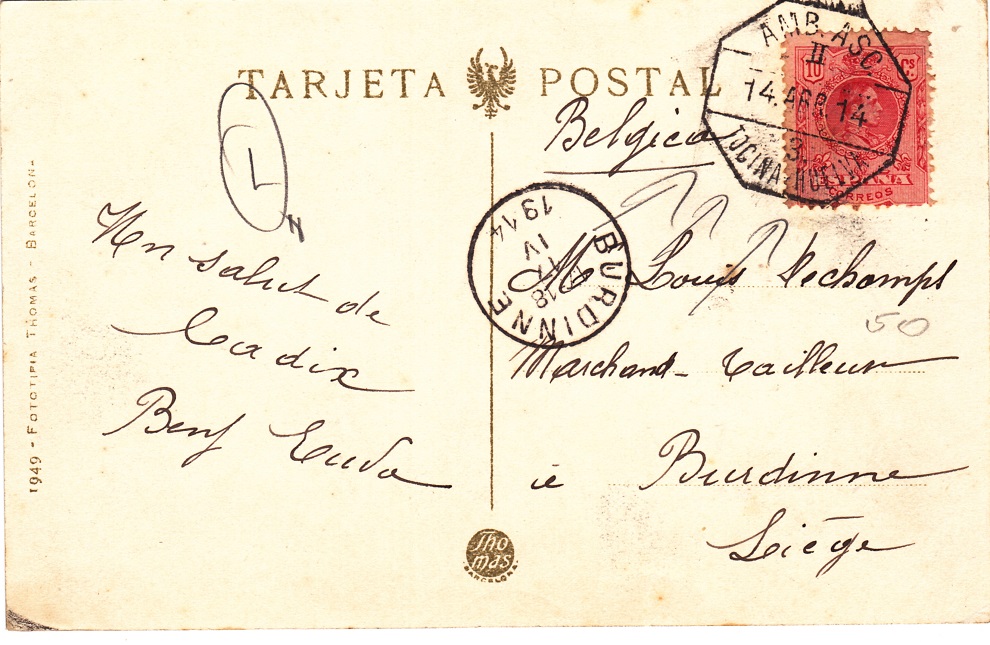 TARJETA POSTAL
AMB. ASC.
II
14. ABR. 14
3.
TOCINA-HUELVA
10 Cs
ESPAÑA
CORREOS
Belgica
L
BURDINNE
18
IV
1914
Un salut de
Cadix
M Louis Dechamps
50
Marchand-Tailleur
Burdinne
Liège
1949 - FOTOTIPIA THOMAS - BARCELONA
Thomas
BARCELONA